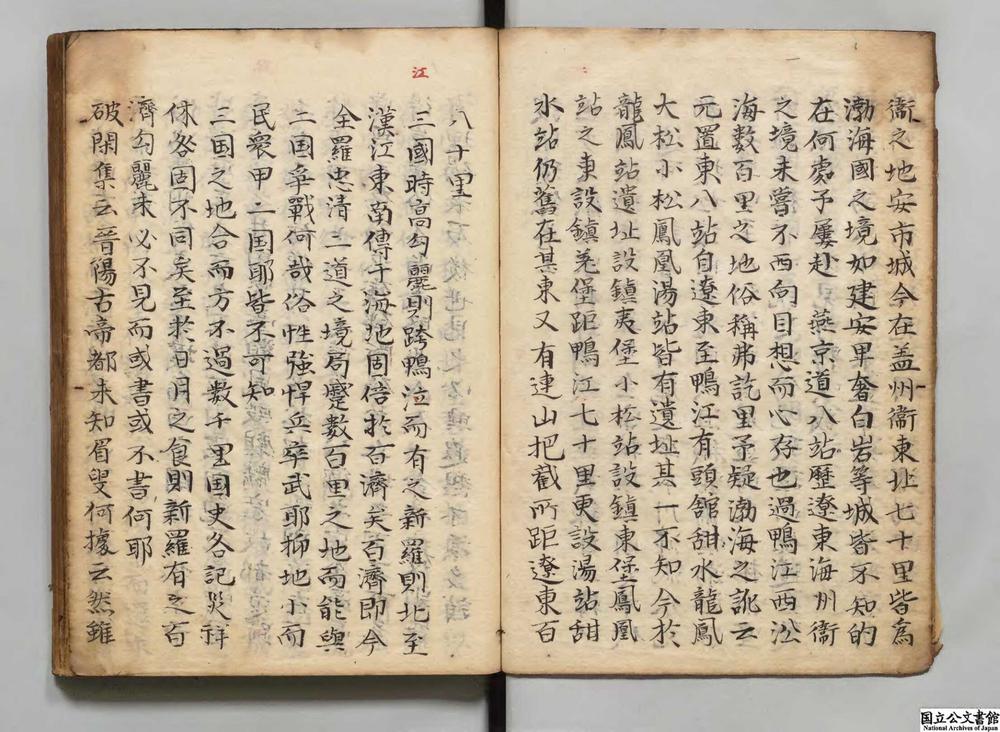 衞之地安市城今在盖州衞東北七十里皆爲
渤海國之境如建安卑奢白岩等城皆不知的
在何處予屢赴燕京道八站歷遼東海州衞
之境未嘗不西向目想而心存也過鴨江西㳂
海數百里之地俗稱弗訖里予疑渤海之訛云
元置東八站自遼東至鴨江有頭舘甜水龍鳳
大松小松鳳凰湯站皆有遺址其一不知今於
龍鳳站遺址設鎮夷堡小松站設鎮東堡鳳凰
站之東設鎮堡距鴨江七十里更設湯站甜
水站仍舊在其東又有連山把截所距遼東百
江
八十里
三國時高勾麗則跨鴨泣而有之新羅則北至
漢江東南傅于海地固倍於百濟矣百濟即今
全羅忠清二道之境局蹙數百里之地而能與
二国爭戰何哉俗性強悍兵卒武耶抑地小而
民衆甲二国耶皆不可知
三国之地合而方不過数千里国史各記災祥
休咎固不同矣至於日月之食則新羅有之百
濟勾麗未必不見而或書或不書何耶
破閑集云晋陽古帝都未知眉叟何據云然雖
国立公文書館
National Archives of Japan